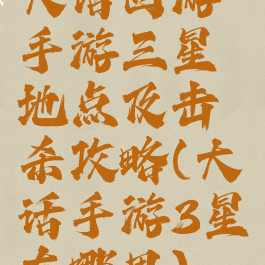 大话西游
手游三星
地点及击
杀攻略(大
话手游3星
在哪里)